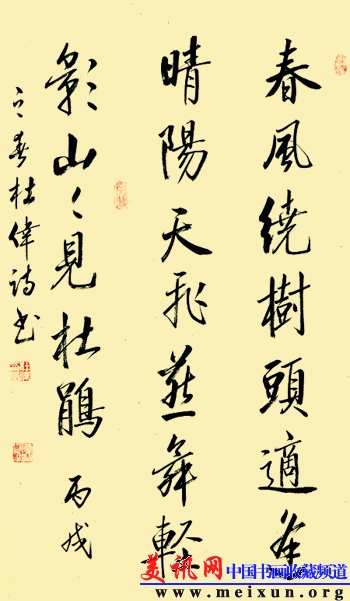 春風繞樹頭適
晴陽天飛燕舞輕
影山々見杜鵑 丙戌
之春杜偉詩书
美讯网 中国书画收藏频道
www.meixun.org